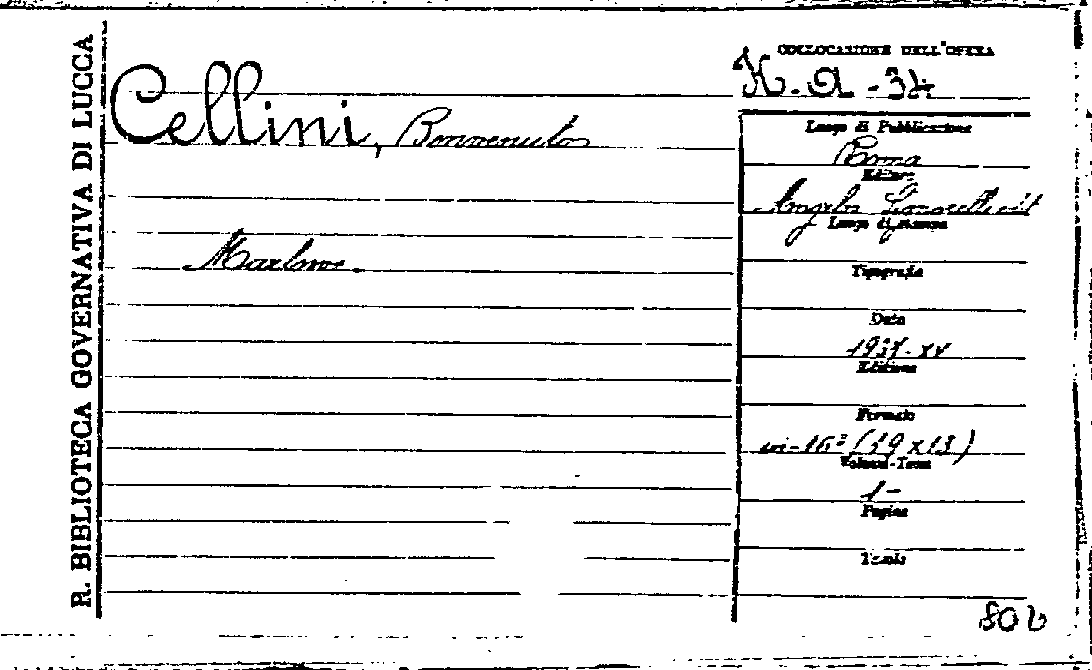 R. BIBLIOTECA GOVERNATIVA DI LUCCA
Cellini, Benvenuto
Marlowe.
COLLOCAZIONE DELL'OPERA
K. a - 34
Luogo di Pubblicazione
Roma
Editore
Angelo Signorelli edit
Luogo di stampa
Tipografia
Data
1937 - XV
Edizione
Formato
in-16° (19 x 13)
Volumi-Tomi
1 -
Pagine
Tavole